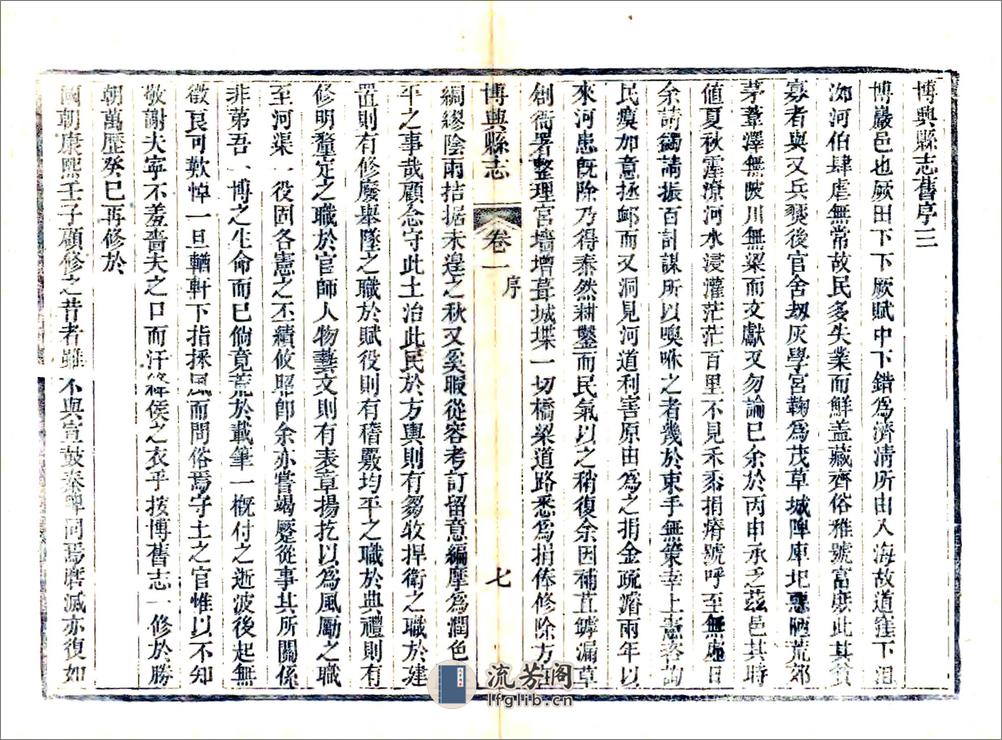 博興縣志舊序三
博嚴邑也厥田下下厥賦中下錯爲濟清所由入海故道窪下沮
洳河伯肆虐無常故民多失業而鮮盖藏齊俗雅號富庶此其貧
寡者與又兵燹後官舍刼灰學宮鞠爲茂草城陴庳圯惡陋荒郊
茅葦澤無陂川無梁而文獻又勿論已余於丙申承乏茲邑其時
値夏秋霪潦河水浸灌茫茫百里不見禾黍捐瘠號呼至無虛日
余請蠲請振百計謀所以噢咻之者幾於束手無策幸上憲洛訪
民瘼加意拯䘏而又洞見河道利害原由爲之捐金疏濬兩年以
來河患旣除乃得泰然耕鑿而民氣以之稍復余因補苴罅漏草
創衙署整理宮墻增葺城堞一切橋梁道路悉爲捐俸修除方且
博興縣志
卷一
序
七
綢繆陰雨拮据未遑之秋又奚暇從容考訂留意編摩爲潤色
平之事哉顧念守此土治此民於方輿則有芻牧捍衛之職於建
置則有修廢舉墜之職於賦役則有稽覈均平之職於典禮則有
修明釐定之職於官師人物藝文則有表章揚扢以爲風勵之職
至河渠一役固各憲之不續攸昭卽余亦嘗竭蹷從事其所關係
非第吾一博之生命而已倘竟荒於載筆一概付之逝波後起無
徵良可歎悼一旦輶軒下指採風而問俗焉守土之官惟以不知
敬謝大寧不羞嗇夫之口而汗絳侯之衣乎按博舊志一修於勝
朝萬歷癸巳再修於
國朝康熙壬子顧修之昔者雖不與宣鼓秦碑同焉磨滅亦復如
流芳阁
lfglib.cn